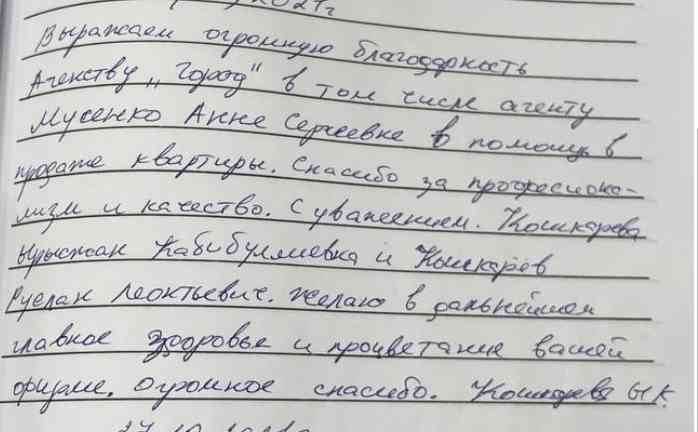 2021г
Выражаем огромную благодарность
Агенству „Город" в том числе агенту
Мусенко Анне Сергеевне в помощь в
продаже квартиры. Спасибо за професиона-
лизм и качество. С уважением. Кошкарева
Ырысжан Кабибуллиевна и Кошкарёв
Руслан Леонтьевич. Желаю в дальнейшем
главное здоровье и процветания вашей
фирме. Огромное спасибо. Кошкарева Ы.К.